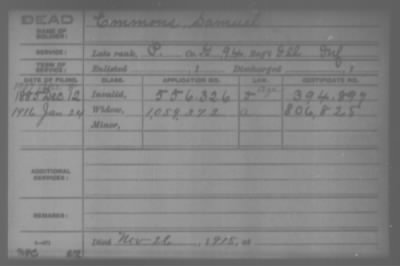 DEAD
NAME OF SOLDIER: Emmons Samuel
SERVICE: Late rank, P. Co. 94 Reg't Ill Inf
TERM OF SERVICE: Enlisted , 1 Discharged , 1
DATE OF FILING. CLASS. APPLICATION NO. LAW. CERTIFICATE NO.
1885 Dec 12 Invalid, 556326 394.897
1916 Jan 24 Widow, 1,059,372 806,825
Minor,
ADDITIONAL SERVICES:
REMARKS:
Died Nov 22, 1915, at